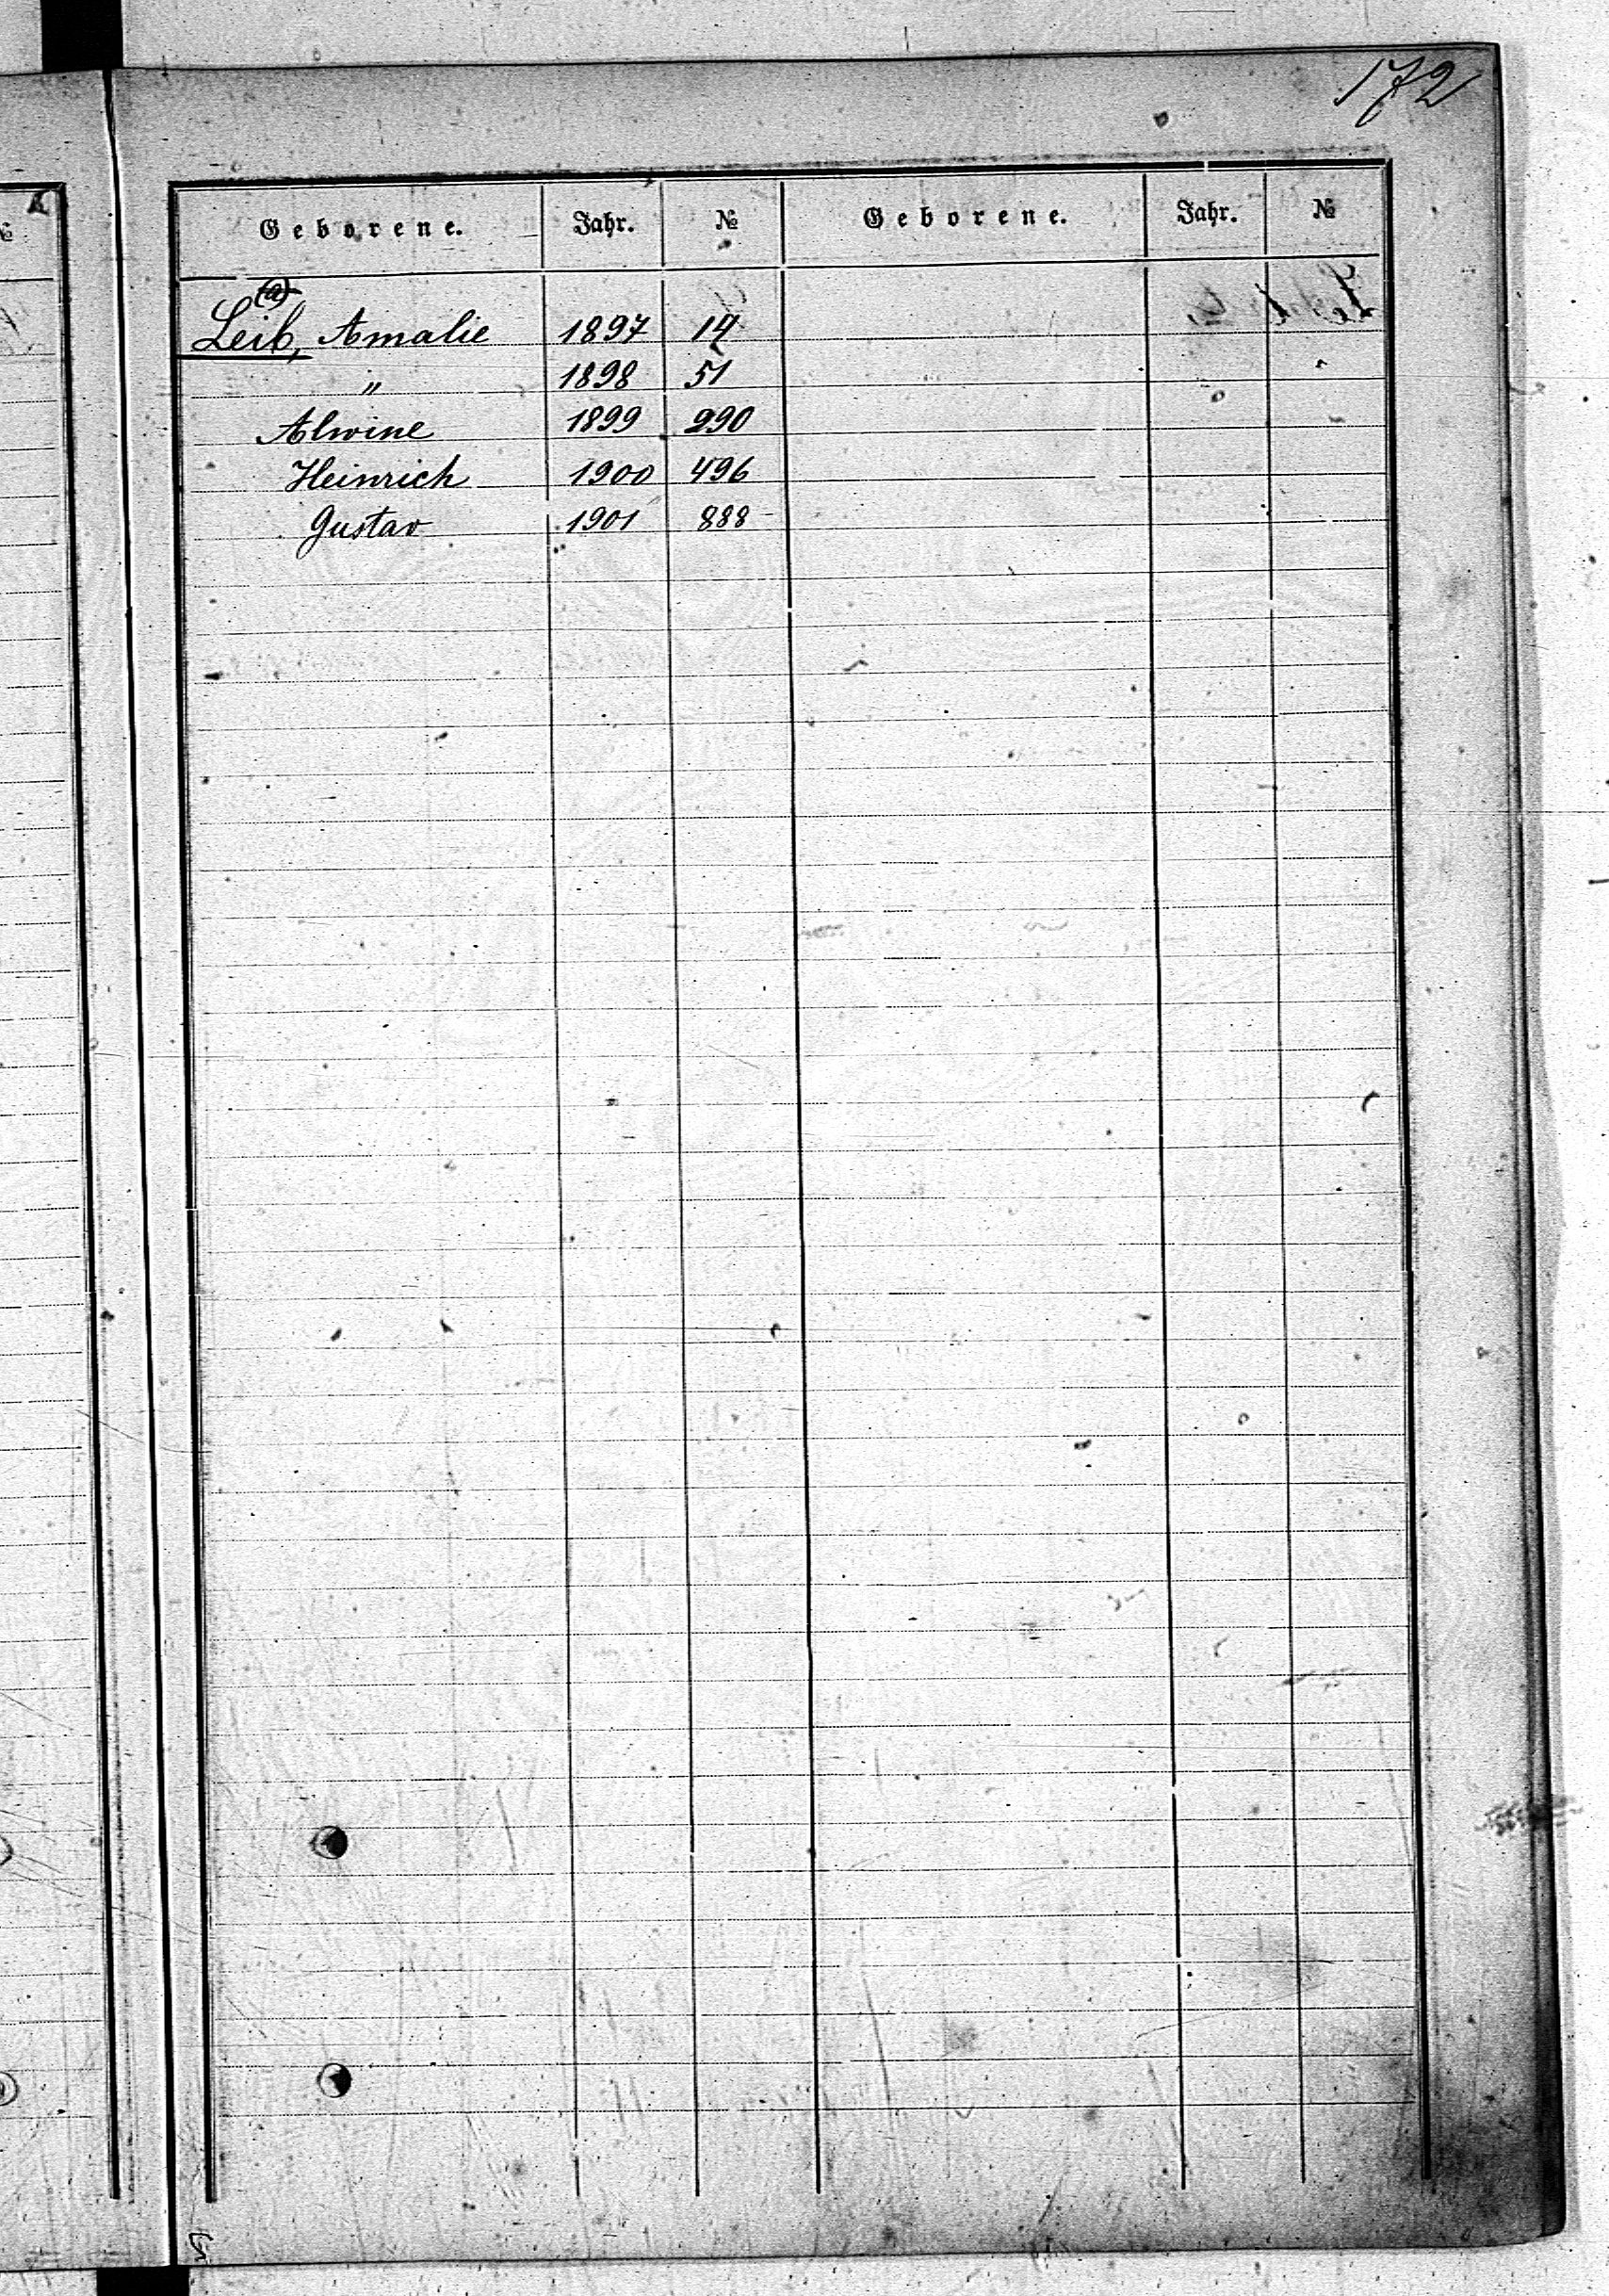 172
Geborene. Jahr. № Geborene. Jahr. №
(a)
Leib, Amalie 1897 14
" 1898 51
Alwine 1899 290
Heinrich 1900 496
Gustav 1901 888